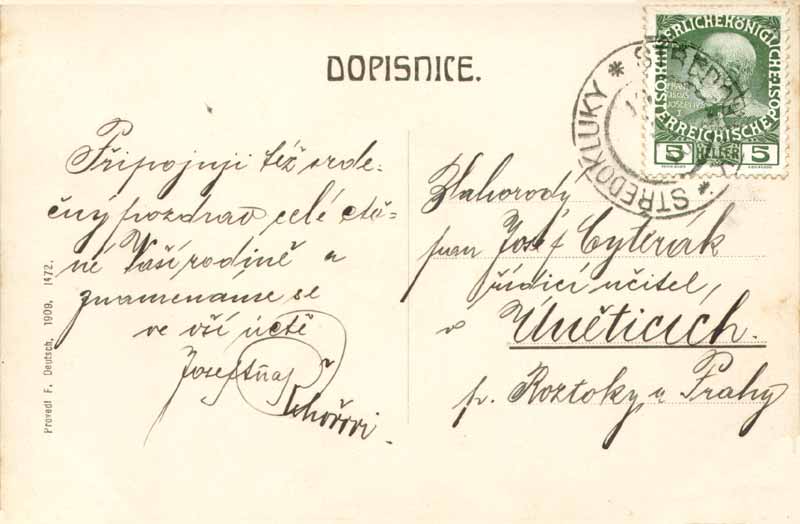 DOPISNICE.
Připojuji též srde-
čný pozdrav celé ctě-
né Vaší rodině a
znamenáme se
ve vší úctě
Josef
Blahorody
pan Josef Cyterák
řídící učitel,
v Úněticích.
p. Roztoky u Prahy
KAISERLICHEKÖNIGLICHE
ÖSTERREICHISCHEPOST
5 HELLER 5
STŘEDOKLUKY * STREDOKLUK *
Provedl F. Deutsch, 1909, 1472.